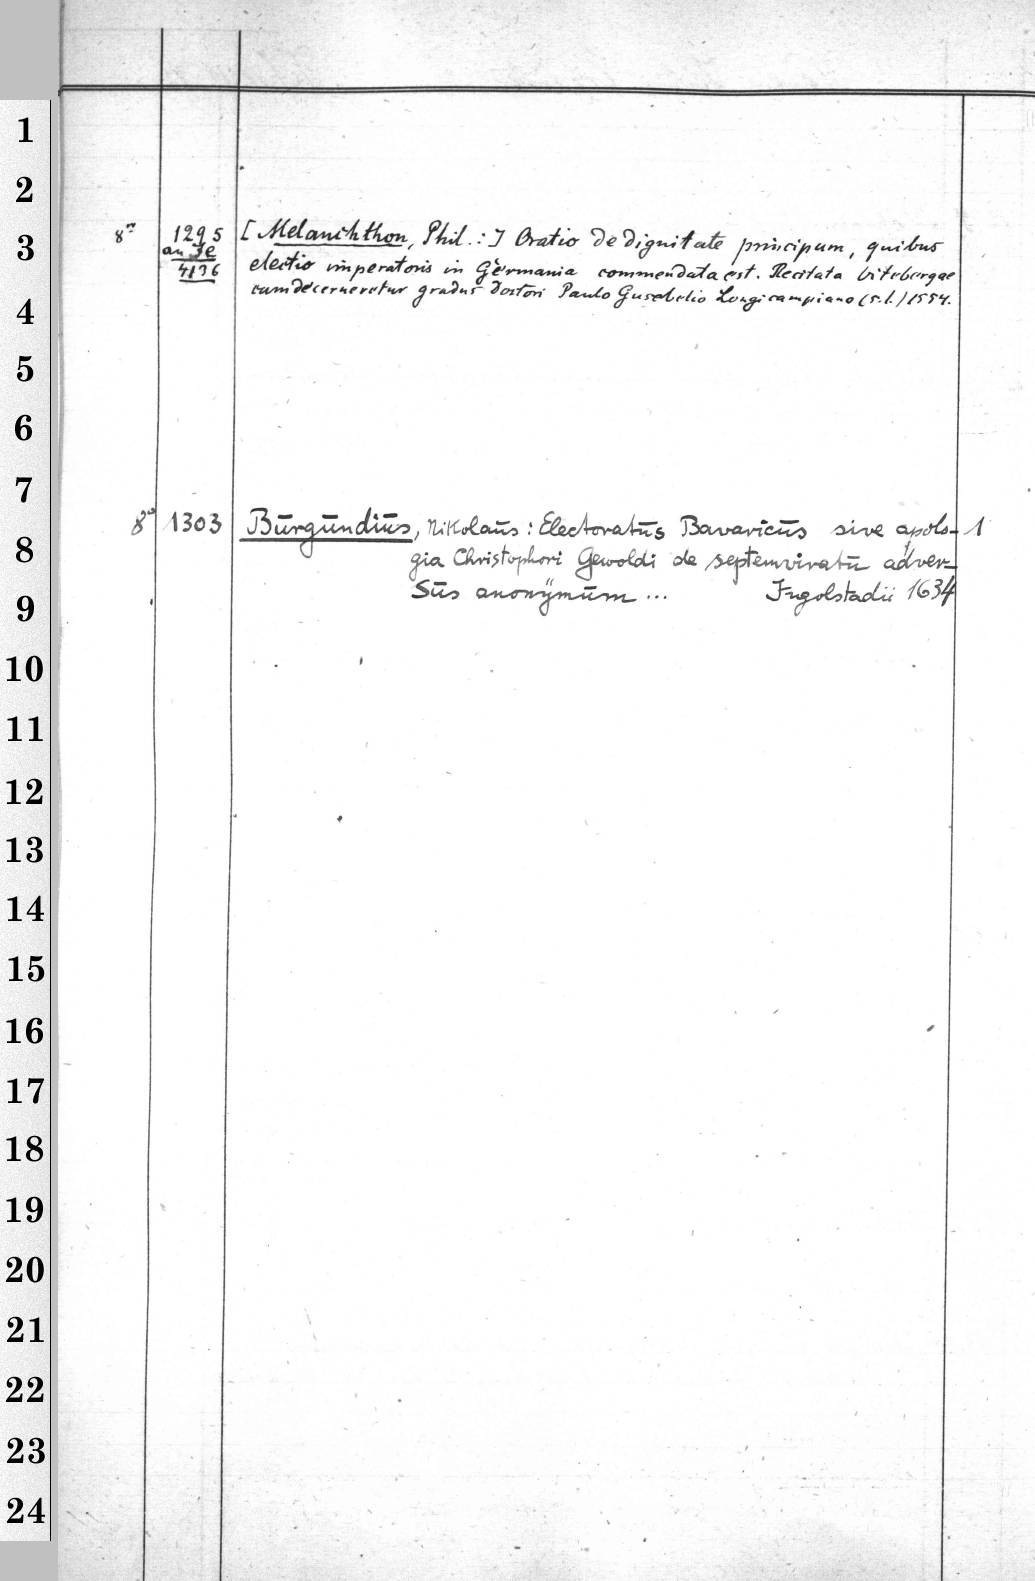 1
2
8° 1295 [Melanchthon, Phil.:] Oratio de dignitate principum, quibus
3
an Je electio imperatoris in Germania commendata est. Recitata Vitebergae
4136 cum decerneretur gradus Doctori Paulo Gusebelio Longicampiano (s.l.) 1554.
4
5
6
7
8° 1303 Burgundius, Nikolaus: Electoratus Bavaricus sive apolo- 1
8
gia Christophori Gewoldi de septemviratu adver-
sus anonymum ... Ingolstadii 1634
9
10
11
12
13
14
15
16
17
18
19
20
21
22
23
24